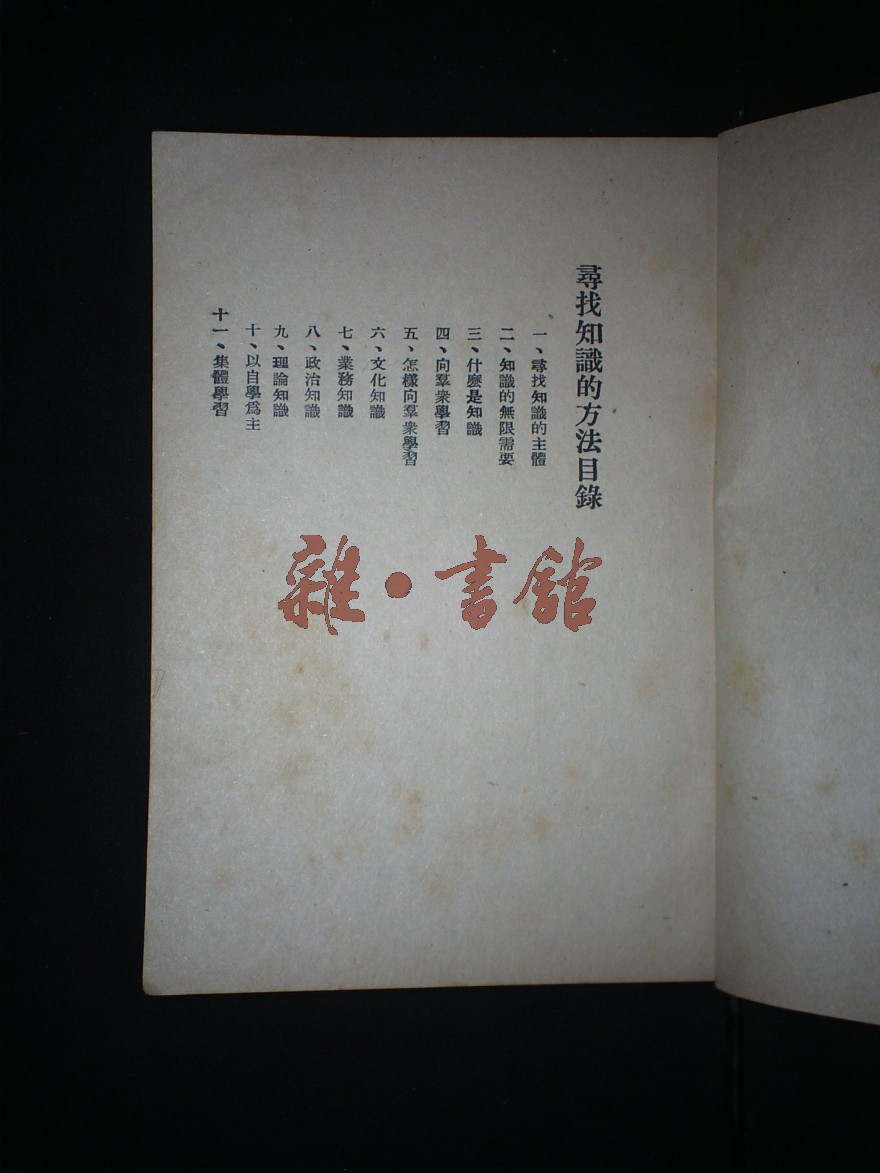 尋找知識的方法目錄
一、尋找知識的主體
二、知識的無限需要
三、什麼是知識
四、向羣衆學習
五、怎樣向羣衆學習
六、文化知識
七、業務知識
八、政治知識
九、理論知識
十、以自學爲主
十一、集體學習
雜·書館